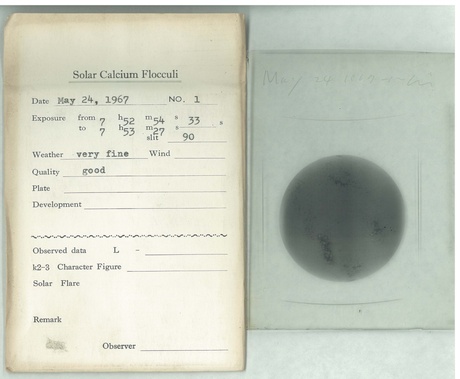 Solar Calcium Flocculi
Date May 24, 1967 NO. 1
Exposure from 7 h52 m54 s 33 s
to 7 h53 m27 s
slit 90
Weather very fine Wind
Quality good
Plate
Development
Observed data L -
k2-3 Character Figure
Solar Flare
Remark
Observer
May 24